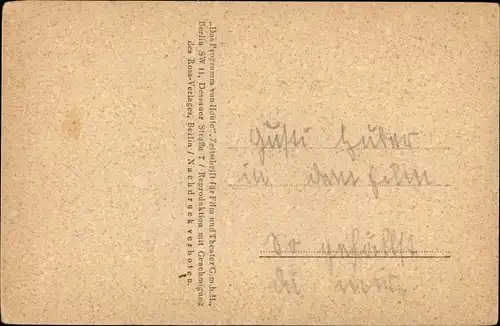 „Das Programm von Heute“, Zeitschrift für Film und Theater G.m.b.H.,
Berlin SW 11, Dessauer Straße 7 / Reproduktion mit Genehmigung
des Ross-Verlages, Berlin / Nachdruck verboten.
Gusti Huber
in dem Film
So gefällst